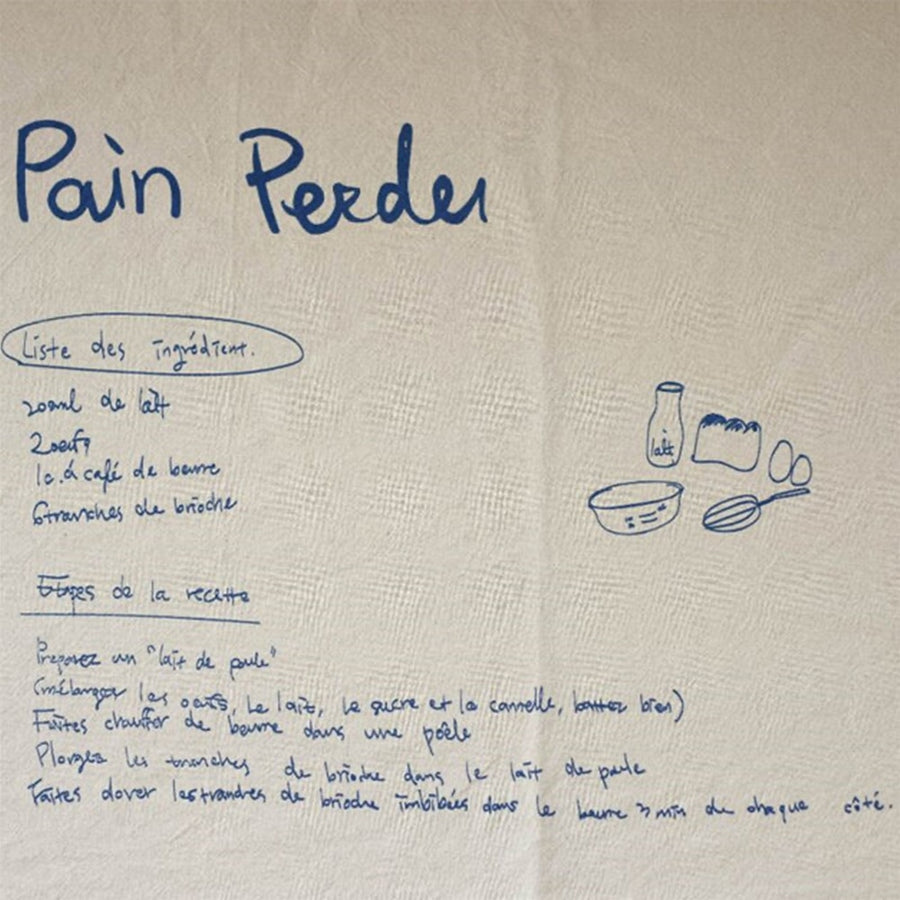 Pain Perdu
Liste des ingrédient.
200ml de lait
2 oeufs
1c.à café de beurre
6 tranches de brioche
lait
Etapes de la recette
Préparez un "lait de poule"
(mélanger les oeufs, le lait, le sucre et la cannelle, battez bien)
Faites chauffer de beurre dans une poêle
Plongez les tranches de brioche dans le lait de poule
Faites dorer les tranches de brioche imbibées dans le beurre 3 min de chaque côté.